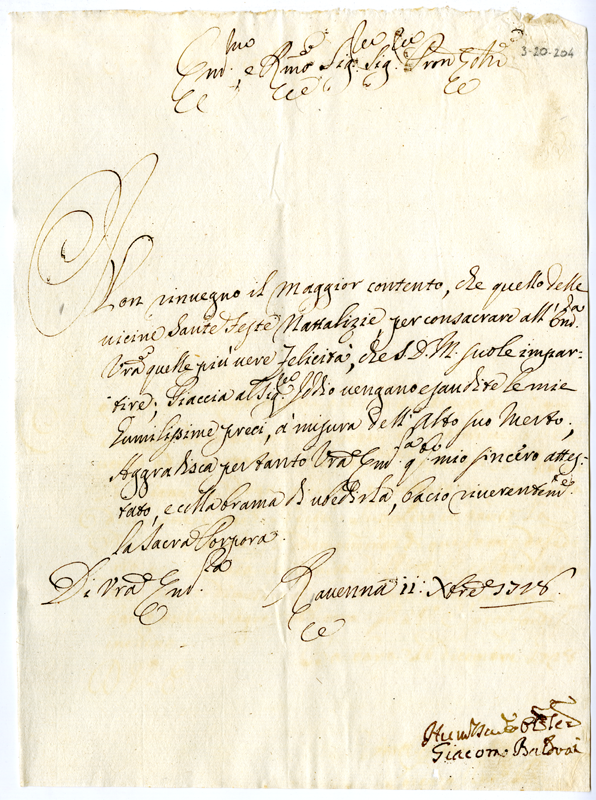 3-20-204
Em.mo e Rmo Sig.re Sig.re Pron Col.mo
Non rinvegno il maggior contento, che quello delle
vicine Sante Feste Nattalizie, per consacrare all' Em.za
Vra quelle più vere Felicità, che S. D. M. suole impar-
tire; Piaccia al Sig.re Iddio vengano esaudite le mie
humilissime preci, à misura dell' Alto suo Merto;
Aggradisca pertanto Vra Em.za q.to mio sincero attes-
tato, e colla brama di ubedirla, bacio riverentem.te
la Sacra Porpora.
Di Vra Em.za Ravenna 11: Xbre 1718.
Giacomo